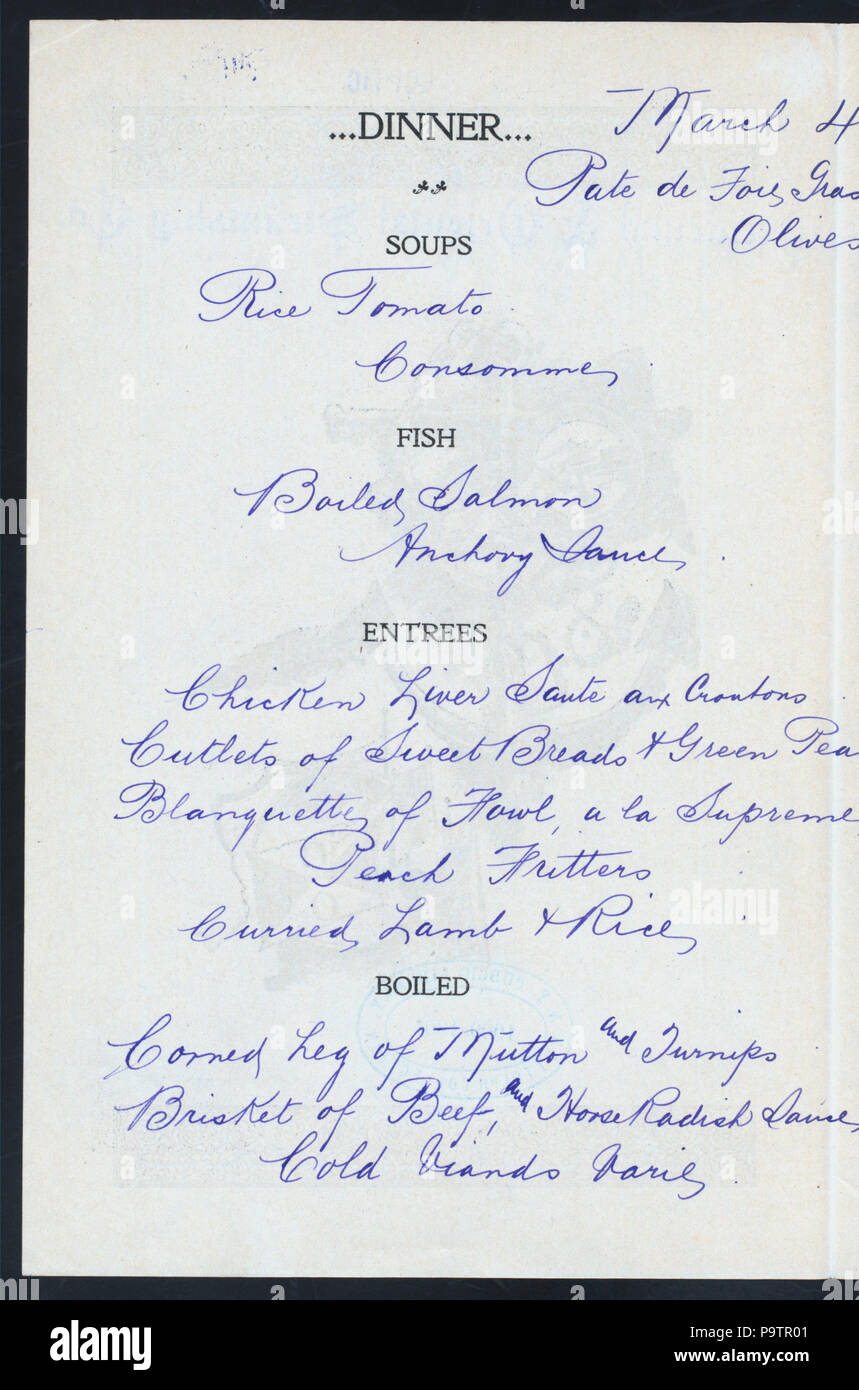 ...DINNER...
March 4
Pate de Foie Gras
Olives
SOUPS
Rice Tomato
Consomme
FISH
Boiled Salmon
Anchovy Sauce
ENTREES
Chicken Liver Saute aux Croutons
Cutlets of Sweet Breads & Green Pea
Blanquette of Fowl, a la Supreme
Peach Fritters
Curried Lamb & Rice
BOILED
Corned Leg of Mutton and Turnips
Brisket of Beef, and Horse Radish Sauce
Cold Viands Varie
alamy
Image ID: P9TR01
www.alamy.com